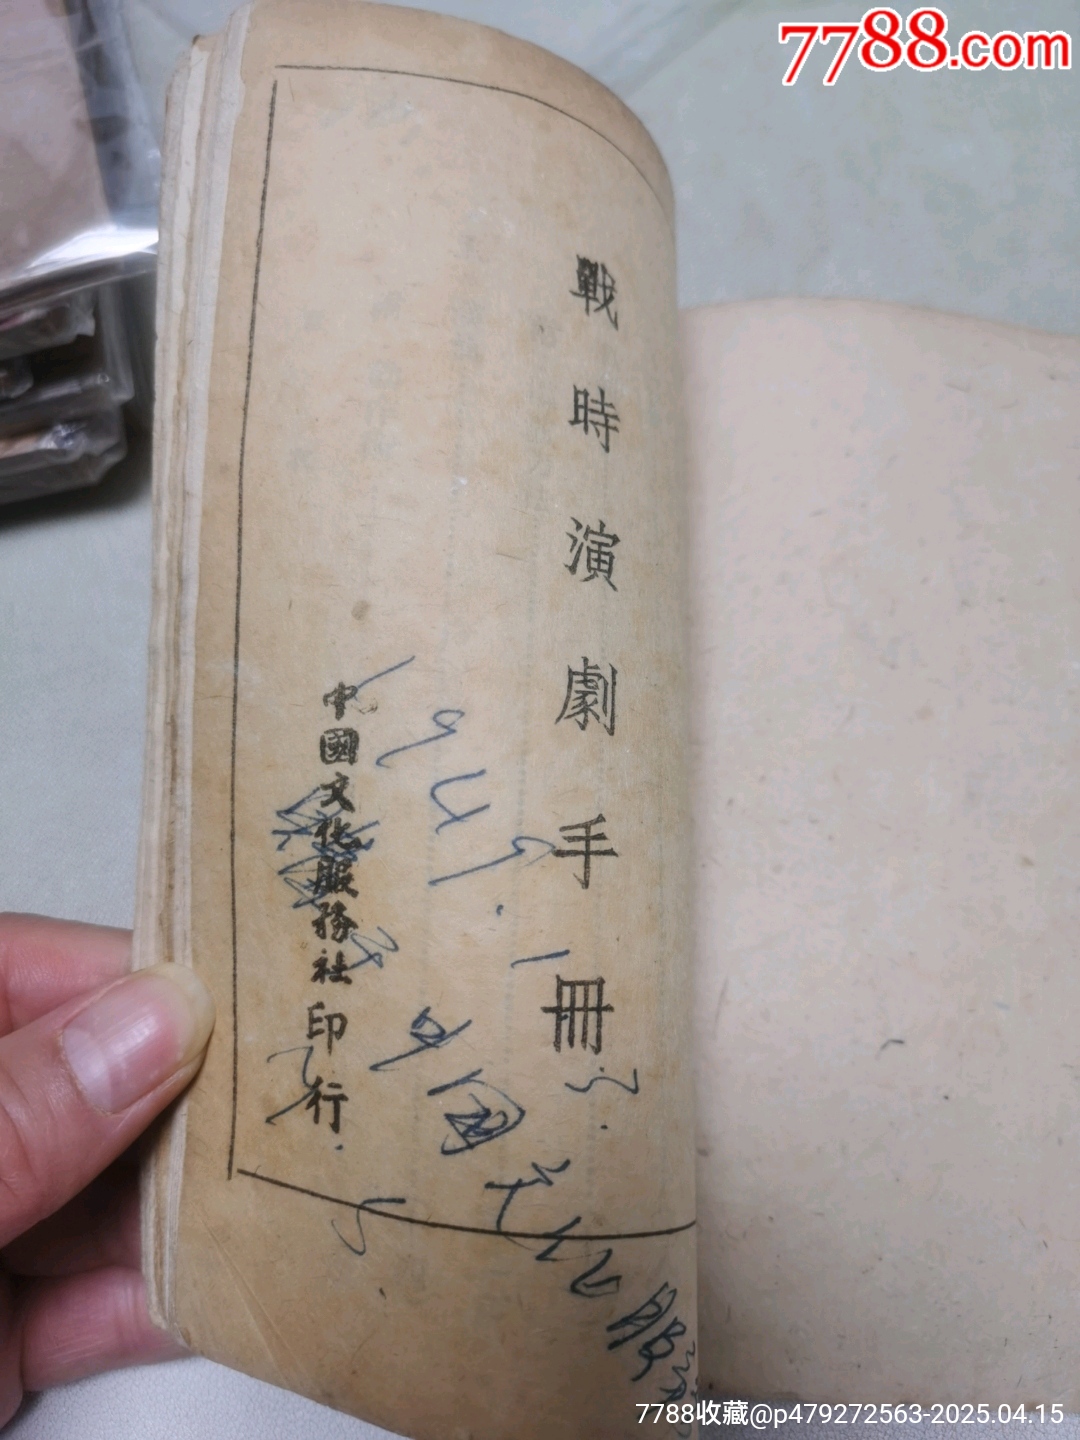 7788.com
戰時演劇手冊
中國文化服務社印行
1949.1
中國文化服
7788收藏@p479272563-2025.04.15